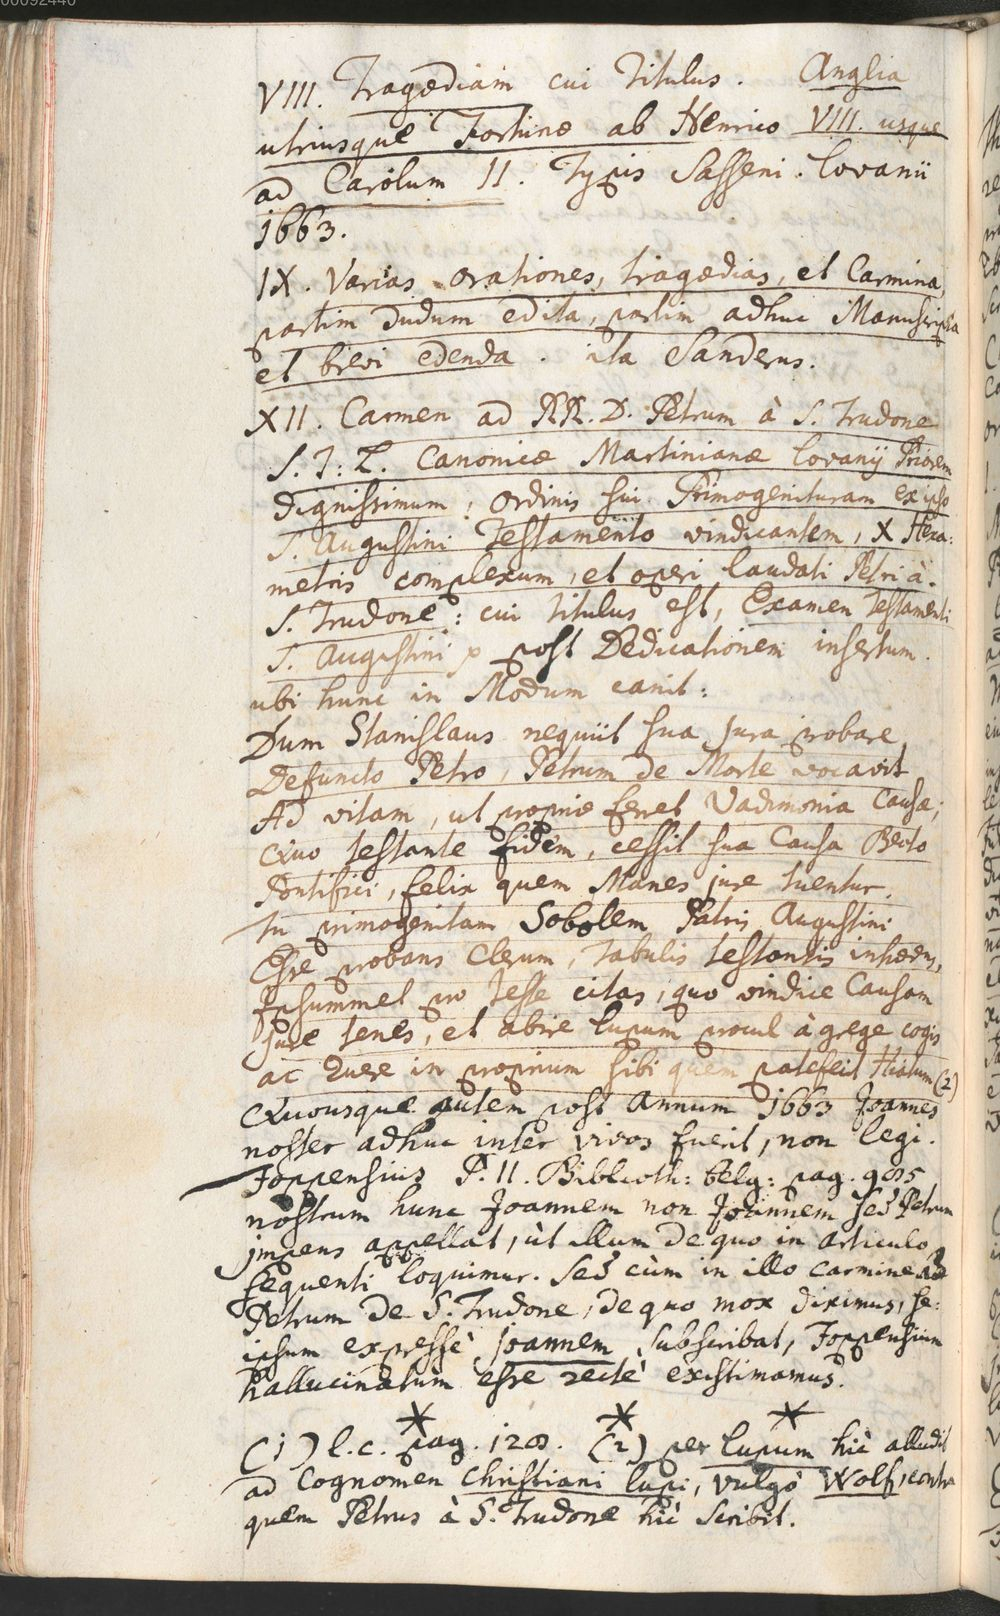 00092440
VIII. Tragœdiam cui Titulus. Anglia
utriusque Fortunæ ab Henrico VIII. usque
ad Carolum II. Typis Sasseni. Lovanii
1663.
IX. Varias orationes, tragœdias, et Carmina,
partim dudum edita, partim adhuc Manuscripta
et brevi edenda. ita Sanderus.
XII. Carmen ad RR. D. Petrum à S. Trudone
S. T: L. Canonicæ Martinianæ Lovanij Priorem
Dignissimum; Ordinis sui Primogenituram ex ipso
S. Augustini Testamento vindicantem, X Hexa:
metris complexum, et operi laudati Petri à
S. Trudone: cui titulus est, Examen Testamenti
S. Augustini post Dedicationem insertum.
ubi hunc in Modum canit:
Dum Stanislaus nequiit sua jura probare
Defuncto Petro, Petrum de Morte vocavit
Ad vitam, ut propriæ feret Vadimonia Causæ;
Quo testante fidem, cessit sua Causa Beato
Pontifici, felix quem Manes jure tuentur.
Tu primogenitam Sobolem Patris Augustini
Esse probans Clerum, tabulis testantis inhærens,
Ipsummet pro Teste citas, quo vindice Causam
Jure tenes, et abire lupum procul à grege cogis
ac ruere in proprium sibi quem patefecit Hiatum (2)
Quousque autem post Annum 1663 Joannes
noster adhuc inter vivos fuerit, non legi.
Foppensius P. II. Biblioth: belg: pag. 985
nostrum hunc Joannem non Joannem sed Petrum
impens appellat, ùt illum de quo in Articulo
sequenti loquimur. Sed cùm in illo carmine ad
Petrum de S. Trudone, de quo mox diximus, se:
ipsum expressè Joannem subscribat, Foppensium
hallucinatum esse rectè existimamus.
(1) l.c. pag. 128. (2) per lupum hic alludit
ad Cognomen Christiani lupi, vulgò Wolf, contra
quem Petrus à S. Trudone hic scribit.